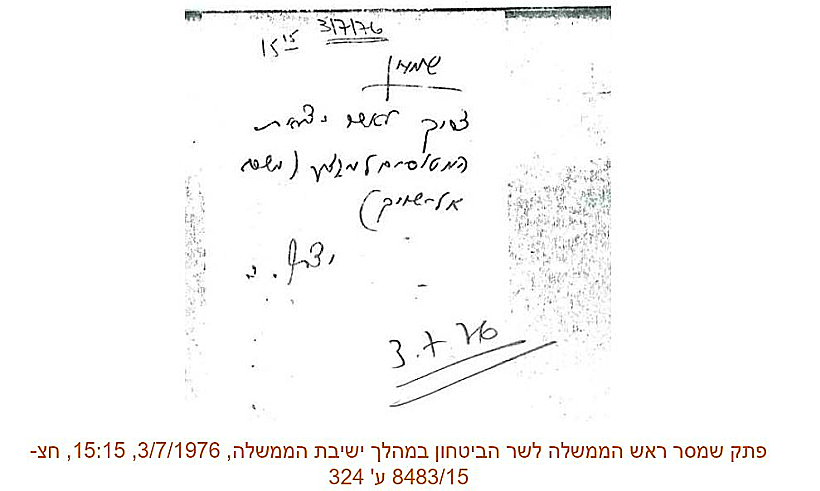 3/7/76
15 15
שמעון
צריך לאשר יציאת
המטוסים למבצע (משרם
אל-שייך)
יצחק. ר.
3.7.76
פתק שמסר ראש הממשלה לשר הביטחון במהלך ישיבת הממשלה, 3/7/1976, 15:15, חצ-
8483/15 ע' 324